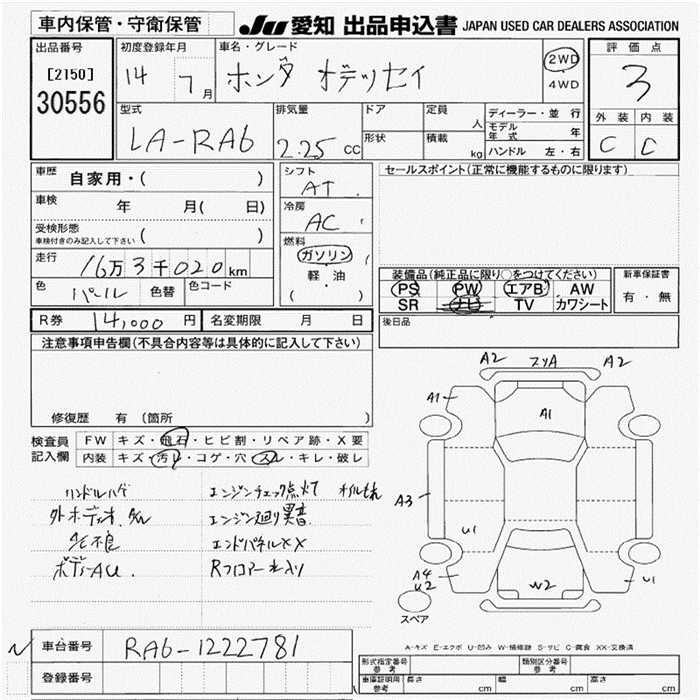 車内保管・守衛保管
JU 愛知 出品申込書 JAPAN USED CAR DEALERS ASSOCIATION
出品番号
[2150]
30556
初度登録年月
14 7月
車名・グレード
ホンダ オデッセイ
2WD
4WD
評価点
3
外装 内装
C C
型式
LA-RA6
排気量
2.25 CC
ドア
形状
定員
人
積載
kg
ディーラー・並行
モデル年式 年
ハンドル 左・右
車歴
自家用・( )
車検
年 月( 日)
受検形態
車検付きのみ記入して下さい ( )
走行
16万3千020km
色
パール
色替
色コード
シフト
AT
冷房
AC
燃料
ガソリン
軽・油
( )
セールスポイント(正常に機能するものに限ります)
装備品(純正品に限り○をつけてください)
PS PW エアB AW
SR ナビ TV カワシート
新車保証書
有・無
後日品
R券 14,000 円
名変期限 月 日
注意事項申告欄(不具合内容等は具体的に記入して下さい)
修復歴 有(箇所 )
検査員
記入欄
FW キズ・飛石・ヒビ割・リペア跡・X要
内装 キズ・汚レ・コゲ・穴・スレ・キレ・破レ
ハンドルハゲ エンジンチェック点灯 オイルもれ
エンジン廻り異音
エンドパネルXX
ボディーAU Rフロアー
A2
A2
A1
A1
A3
U1
A4
U2
W2
U1
スペア
車台番号
RA6-1222781
登録番号
A-キズ E-エクボ U-凹み W-補修跡 S-サビ C-腐食 XX-交換済
型式指定番号
参考
類別区分番号
参考
車庫証明用
参考
長さ cm
幅 cm
高さ cm